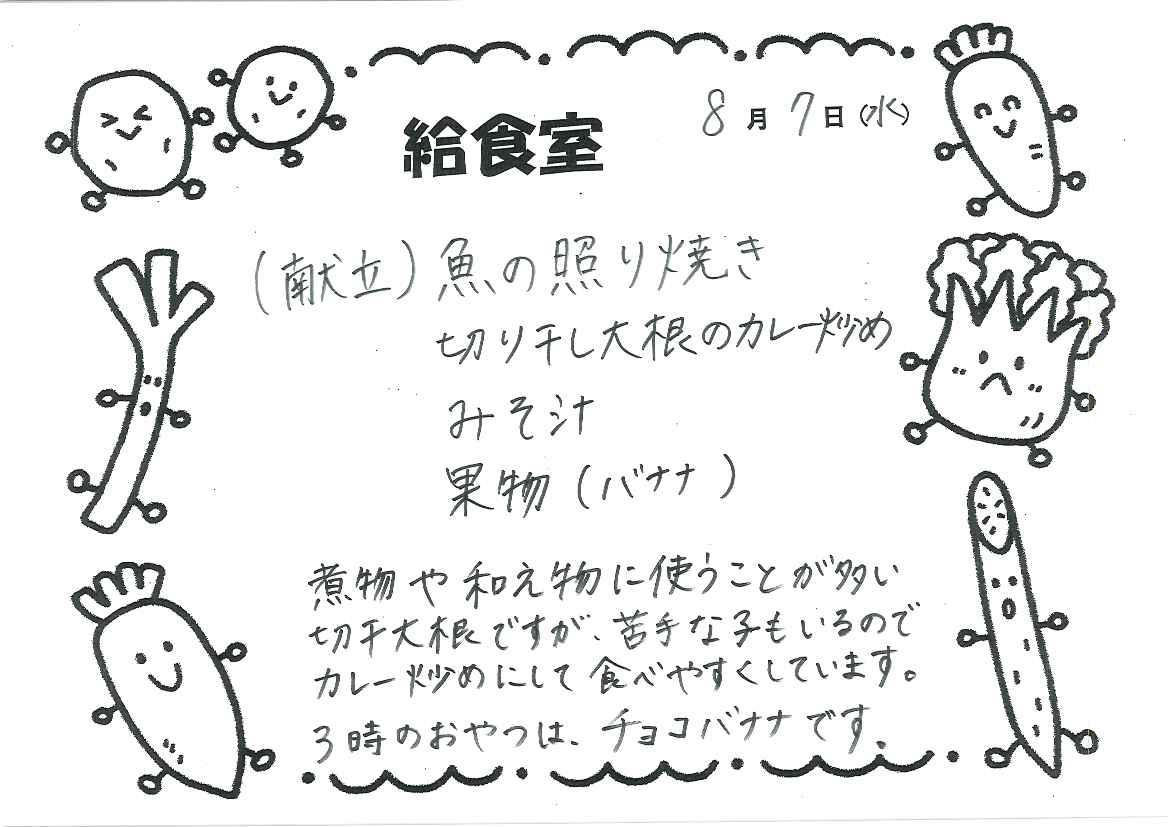 給食室
8月7日(水)
(献立)魚の照り焼き
切り干し大根のカレー炒め
みそ汁
果物(バナナ)
煮物や和え物に使うことが多い
切干大根ですが、苦手な子もいるので
カレー炒めにして食べやすくしています。
3時のおやつは、チョコバナナです。